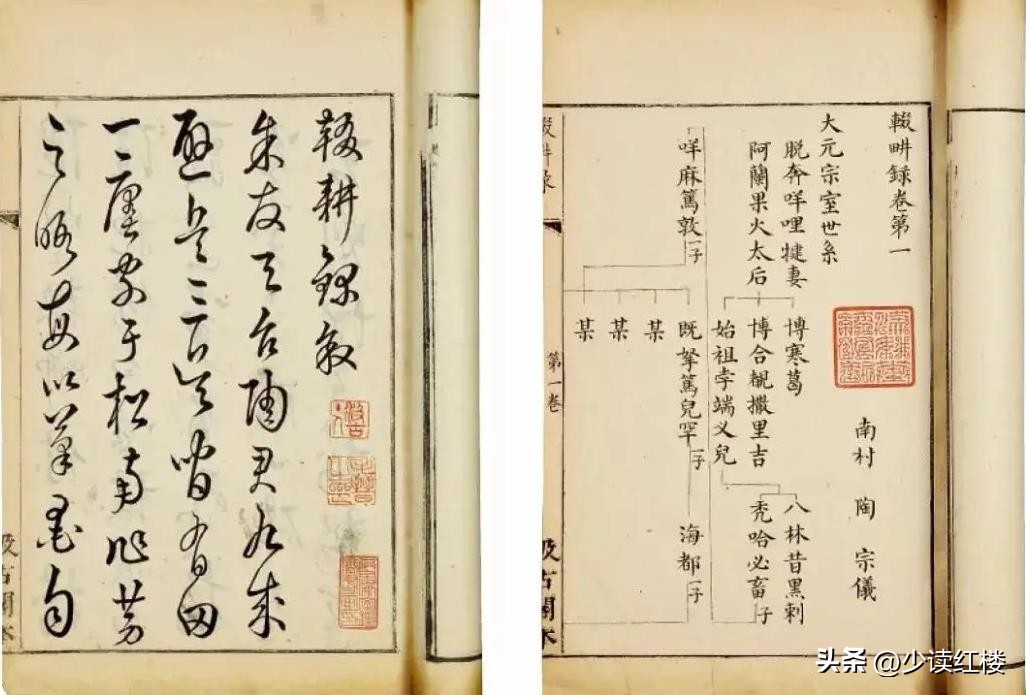 輟耕錄敘
余友天台陶君九成
避兵三吳間有田
一廛家于松南作勞
之暇每以筆墨自
汲古閣本
輟畊録卷第一
南村 陶 宗儀
大元宗室世系
脱奔咩哩犍妻
阿蘭果火太后
博寒葛
博合覩撒里吉
始祖孛端义兒
八林昔黒剌
秃哈必畜子
咩麻篤敦一子
既拏篤兒罕一子
海都一子
某
某
某
第一卷
汲古閣本
头条 @少读红楼